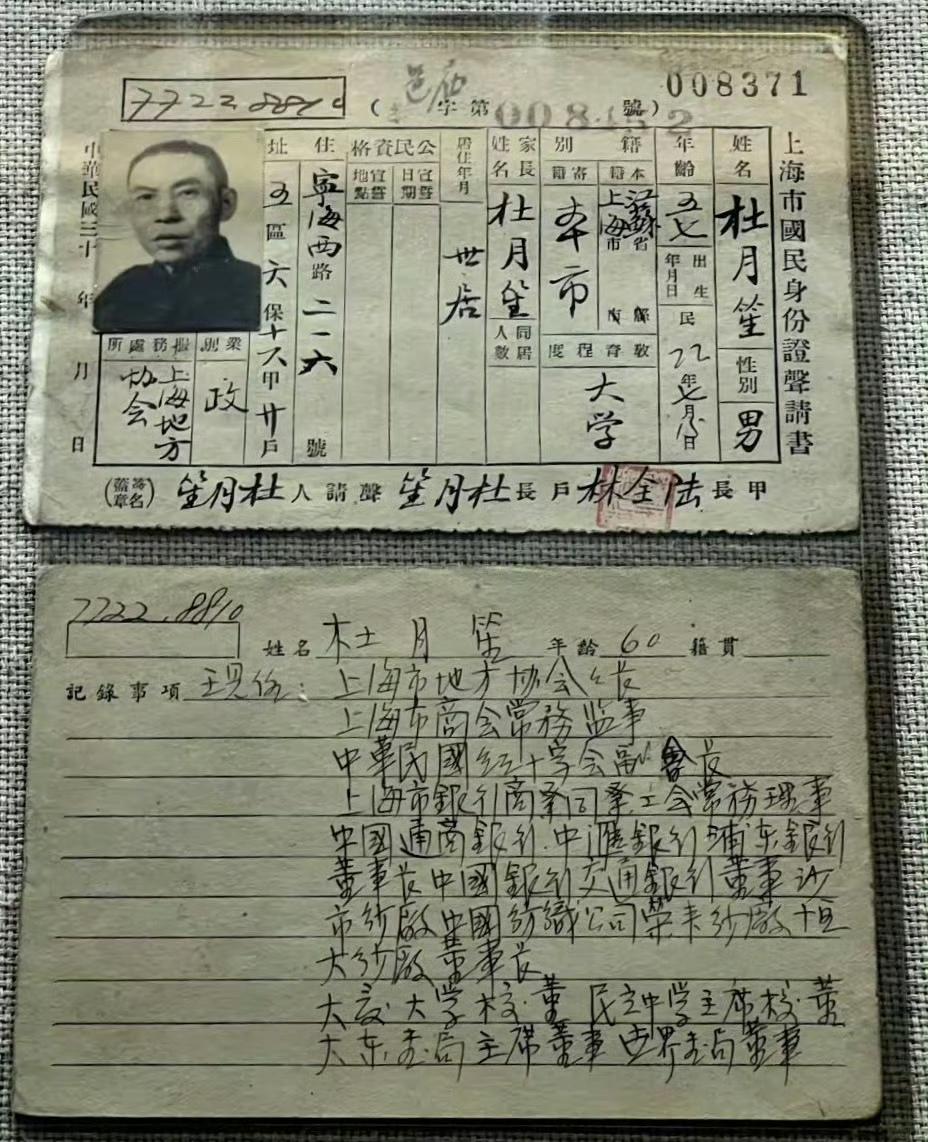 008371
7722.8810
(邑庙字第008452號)
上海市國民身份證聲請書
姓名 杜月笙 性別 男
年齡 五七 出生年月日 民 22年 月 日
籍別 本籍 江蘇省上海市縣 寄籍 本市
教育程度 大学
家長姓名 杜月笙 同居人數
居住年月 世居
公民資格 宣誓日期 宣誓地點
住址 寧海西路二一六號
五區六保十六甲廿戶
業別 政 服務處所 上海地方协会
中華民國三十 年 月 日
甲長 陆全林 戶長 杜月笙 聲請人 杜月笙 (簽名蓋章)
7722.8810
姓名 杜月笙 年齡 60 籍貫
記錄事項 现任:上海市地方协会会长
上海市商会常務监事
中華民國红十字会副會长
上海市銀行商業同業公会常務理事
中國通商銀行.中匯銀行浦东銀行
董事长中國銀行交通銀行董事沙
市紗廠中國紡織公司榮丰纱廠恒
大纱廠董事长
大夏大学校董 民立中学主席校董
大东书局主席董事世界书局董事